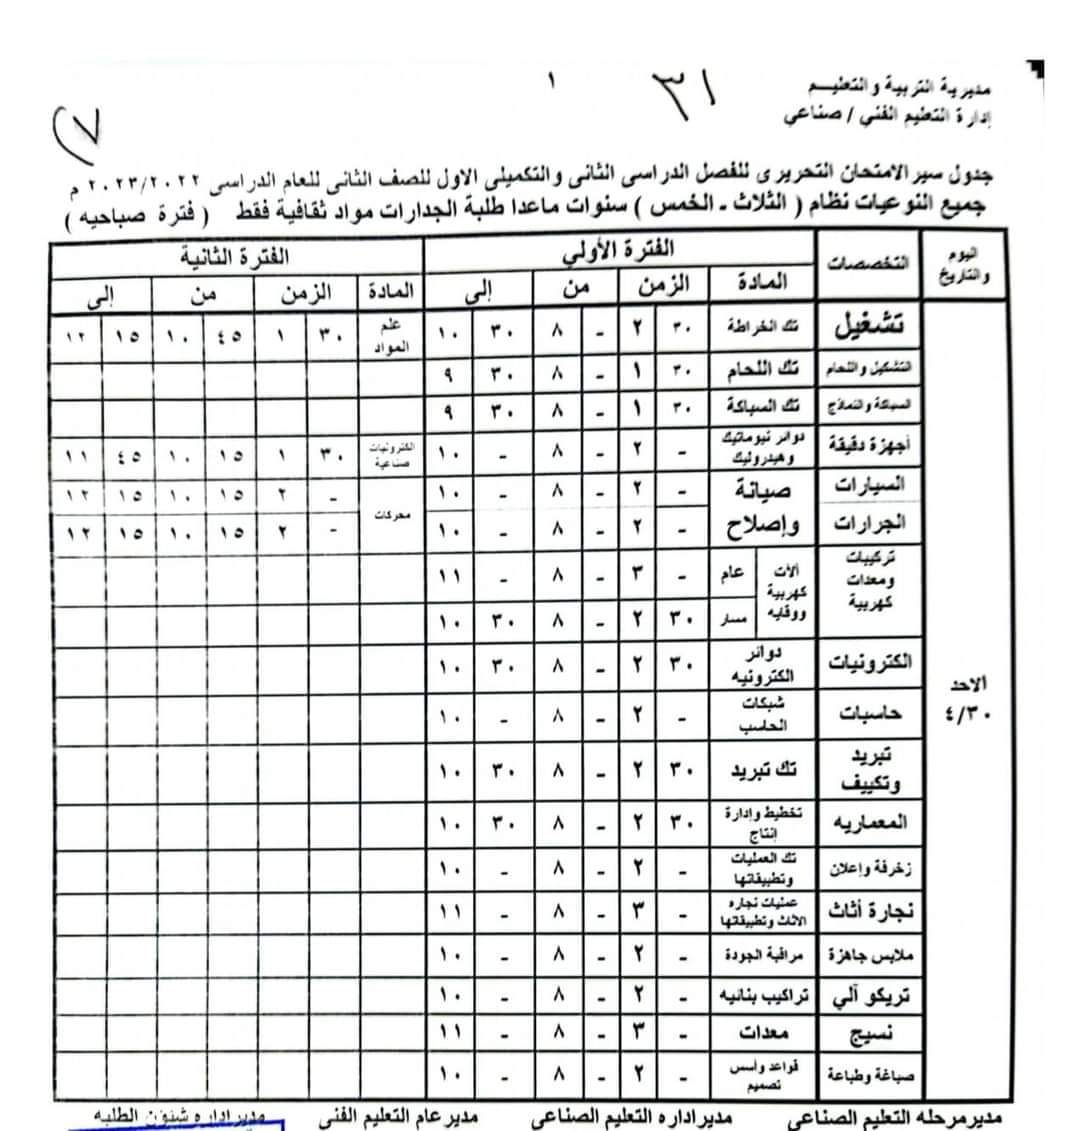 مديرية التربية والتعليم
إدارة التعليم الفني / صناعي
٣١
١
٧
جدول سير الامتحان التحريرى للفصل الدراسى الثانى والتكميلى الاول للصف الثانى للعام الدراسى ٢٠٢٣/٢٠٢٢ م
جميع النوعيات نظام ( الثلاث - الخمس ) سنوات ماعدا طلبة الجدارات مواد ثقافية فقط ( فترة صباحيه )
اليوم والتاريخ التخصصات الفترة الأولي الفترة الثانية
المادة الزمن من إلى المادة الزمن من إلى
تشغيل تك الخراطة ٣٠ ٢ - ٨ ٣٠ ١٠ علم المواد ٣٠ ١ ٤٥ ١٠ ١٥ ١٢
التشكيل واللحام تك اللحام ٣٠ ١ - ٨ ٣٠ ٩
السباكة والنماذج تك السباكة ٣٠ ١ - ٨ ٣٠ ٩
أجهزة دقيقة دوائر نيوماتيك وهيدروليك - ٢ - ٨ - ١٠ الكترونيات صناعية ٣٠ ١ ١٥ ١٠ ٤٥ ١١
السيارات صيانة وإصلاح - ٢ - ٨ - ١٠ محركات - ٢ ١٥ ١٠ ١٥ ١٢
الجرارات - ٢ - ٨ - ١٠ - ٢ ١٥ ١٠ ١٥ ١٢
تركيبات ومعدات كهربية ألات كهربية ووقايه عام - ٣ - ٨ - ١١
مسار ٣٠ ٢ - ٨ ٣٠ ١٠
الكترونيات دوائر الكترونيه ٣٠ ٢ - ٨ ٣٠ ١٠
الاحد ٤/٣٠
حاسبات شبكات الحاسب - ٢ - ٨ - ١٠
تبريد وتكييف تك تبريد ٣٠ ٢ - ٨ ٣٠ ١٠
المعماريه تخطيط وإدارة إنتاج ٣٠ ٢ - ٨ ٣٠ ١٠
زخرفة وإعلان تك العمليات وتطبيقاتها - ٢ - ٨ - ١٠
نجارة أثاث عمليات نجاره الاثاث وتطبيقاتها - ٣ - ٨ - ١١
ملابس جاهزة مراقبة الجودة - ٢ - ٨ - ١٠
تريكو آلي تراكيب بنائيه - ٢ - ٨ - ١٠
نسيج معدات - ٣ - ٨ - ١١
صباغة وطباعة قواعد وأسس تصميم - ٢ - ٨ - ١٠
مدير مرحله التعليم الصناعي مدير اداره التعليم الصناعي مدير عام التعليم الفني مدير اداره شئون الطلبه